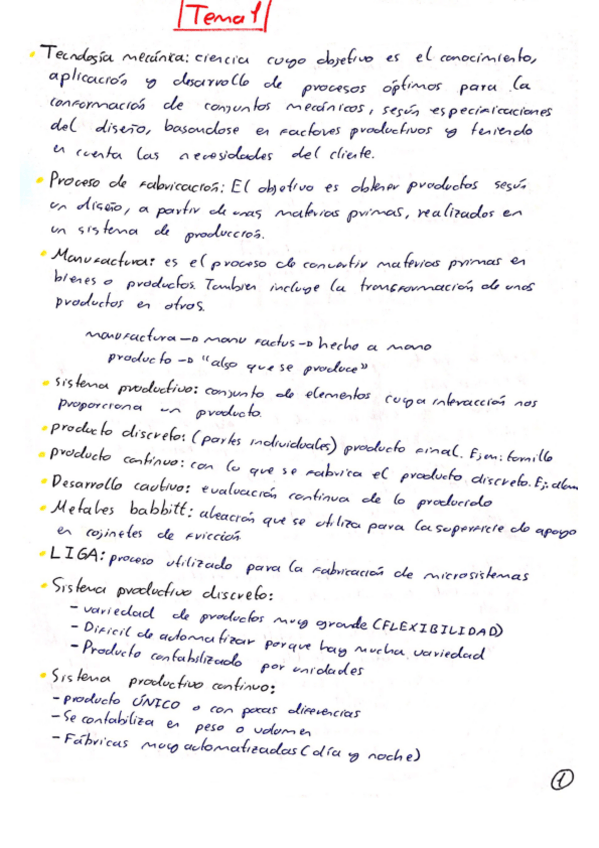 Tema 1
Tecnología mecánica: ciencia cuyo objetivo es el conocimiento,
aplicación y desarrollo de procesos óptimos para la
conformación de conjuntos mecánicos, según especificaciones
del diseño, basandose en factores productivos y teniendo
en cuenta las necesidades del cliente.
Proceso de fabricación: El objetivo es obtener productos según
un diseño, a partir de unas materias primas, realizados en
un sistema de producción.
Manufactura: es el proceso de convertir materias primas en
bienes o productos. Tambien incluye la transformación de unos
productos en otros.
manufactura → manu factus → hecho a mano
producto → "algo que se produce"
sistema productivo: conjunto de elementos cuya interacción nos
proporciona un producto.
producto discreto: (partes individuales) producto final. Ejm: tornillo
producto continuo: con lo que se fabrica el producto discreto. Ej:
Desarrollo cautivo: evaluación continua de lo producido
Metales babbitt: aleación que se utiliza para la superficie de apoyo
en cojinetes de fricción
LIGA: proceso utilizado para la fabricación de microsistemas
Sistema productivo discreto:
- variedad de productos muy grande (FLEXIBILIDAD)
- Dificil de automatizar porque hay mucha variedad
- Producto contabilizado por unidades
Sistema productivo continuo:
- producto ÚNICO o con pocas diferencias
- Se contabiliza en peso o volumen
- Fábricas muy automatizadas (día y noche)
1